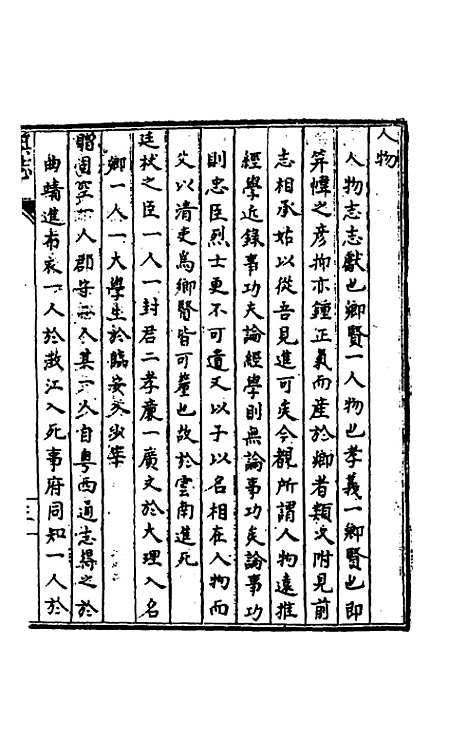 人物
人物志志獻也鄉賢一人物也孝義一鄉賢也即
笄幃之彥抑亦鍾正氣而産於鄉者類次附見前
志相承姑以從吾見進可矣今觀所謂人物遠推
經學近錄事功夫論經學則無論事功矣論事功
則忠臣烈士更不可遺又以子以名相在人物而
父以清吏爲鄉賢皆可釐也故於雲南進死
廷杖之臣一人一封君二孝廉一廣文於大理入名
卿一人一大學生於臨安
贈 一人郡 入某一人自粵西通志得之於
曲靖進布衣一人於澂江入死事府同知一人於
志